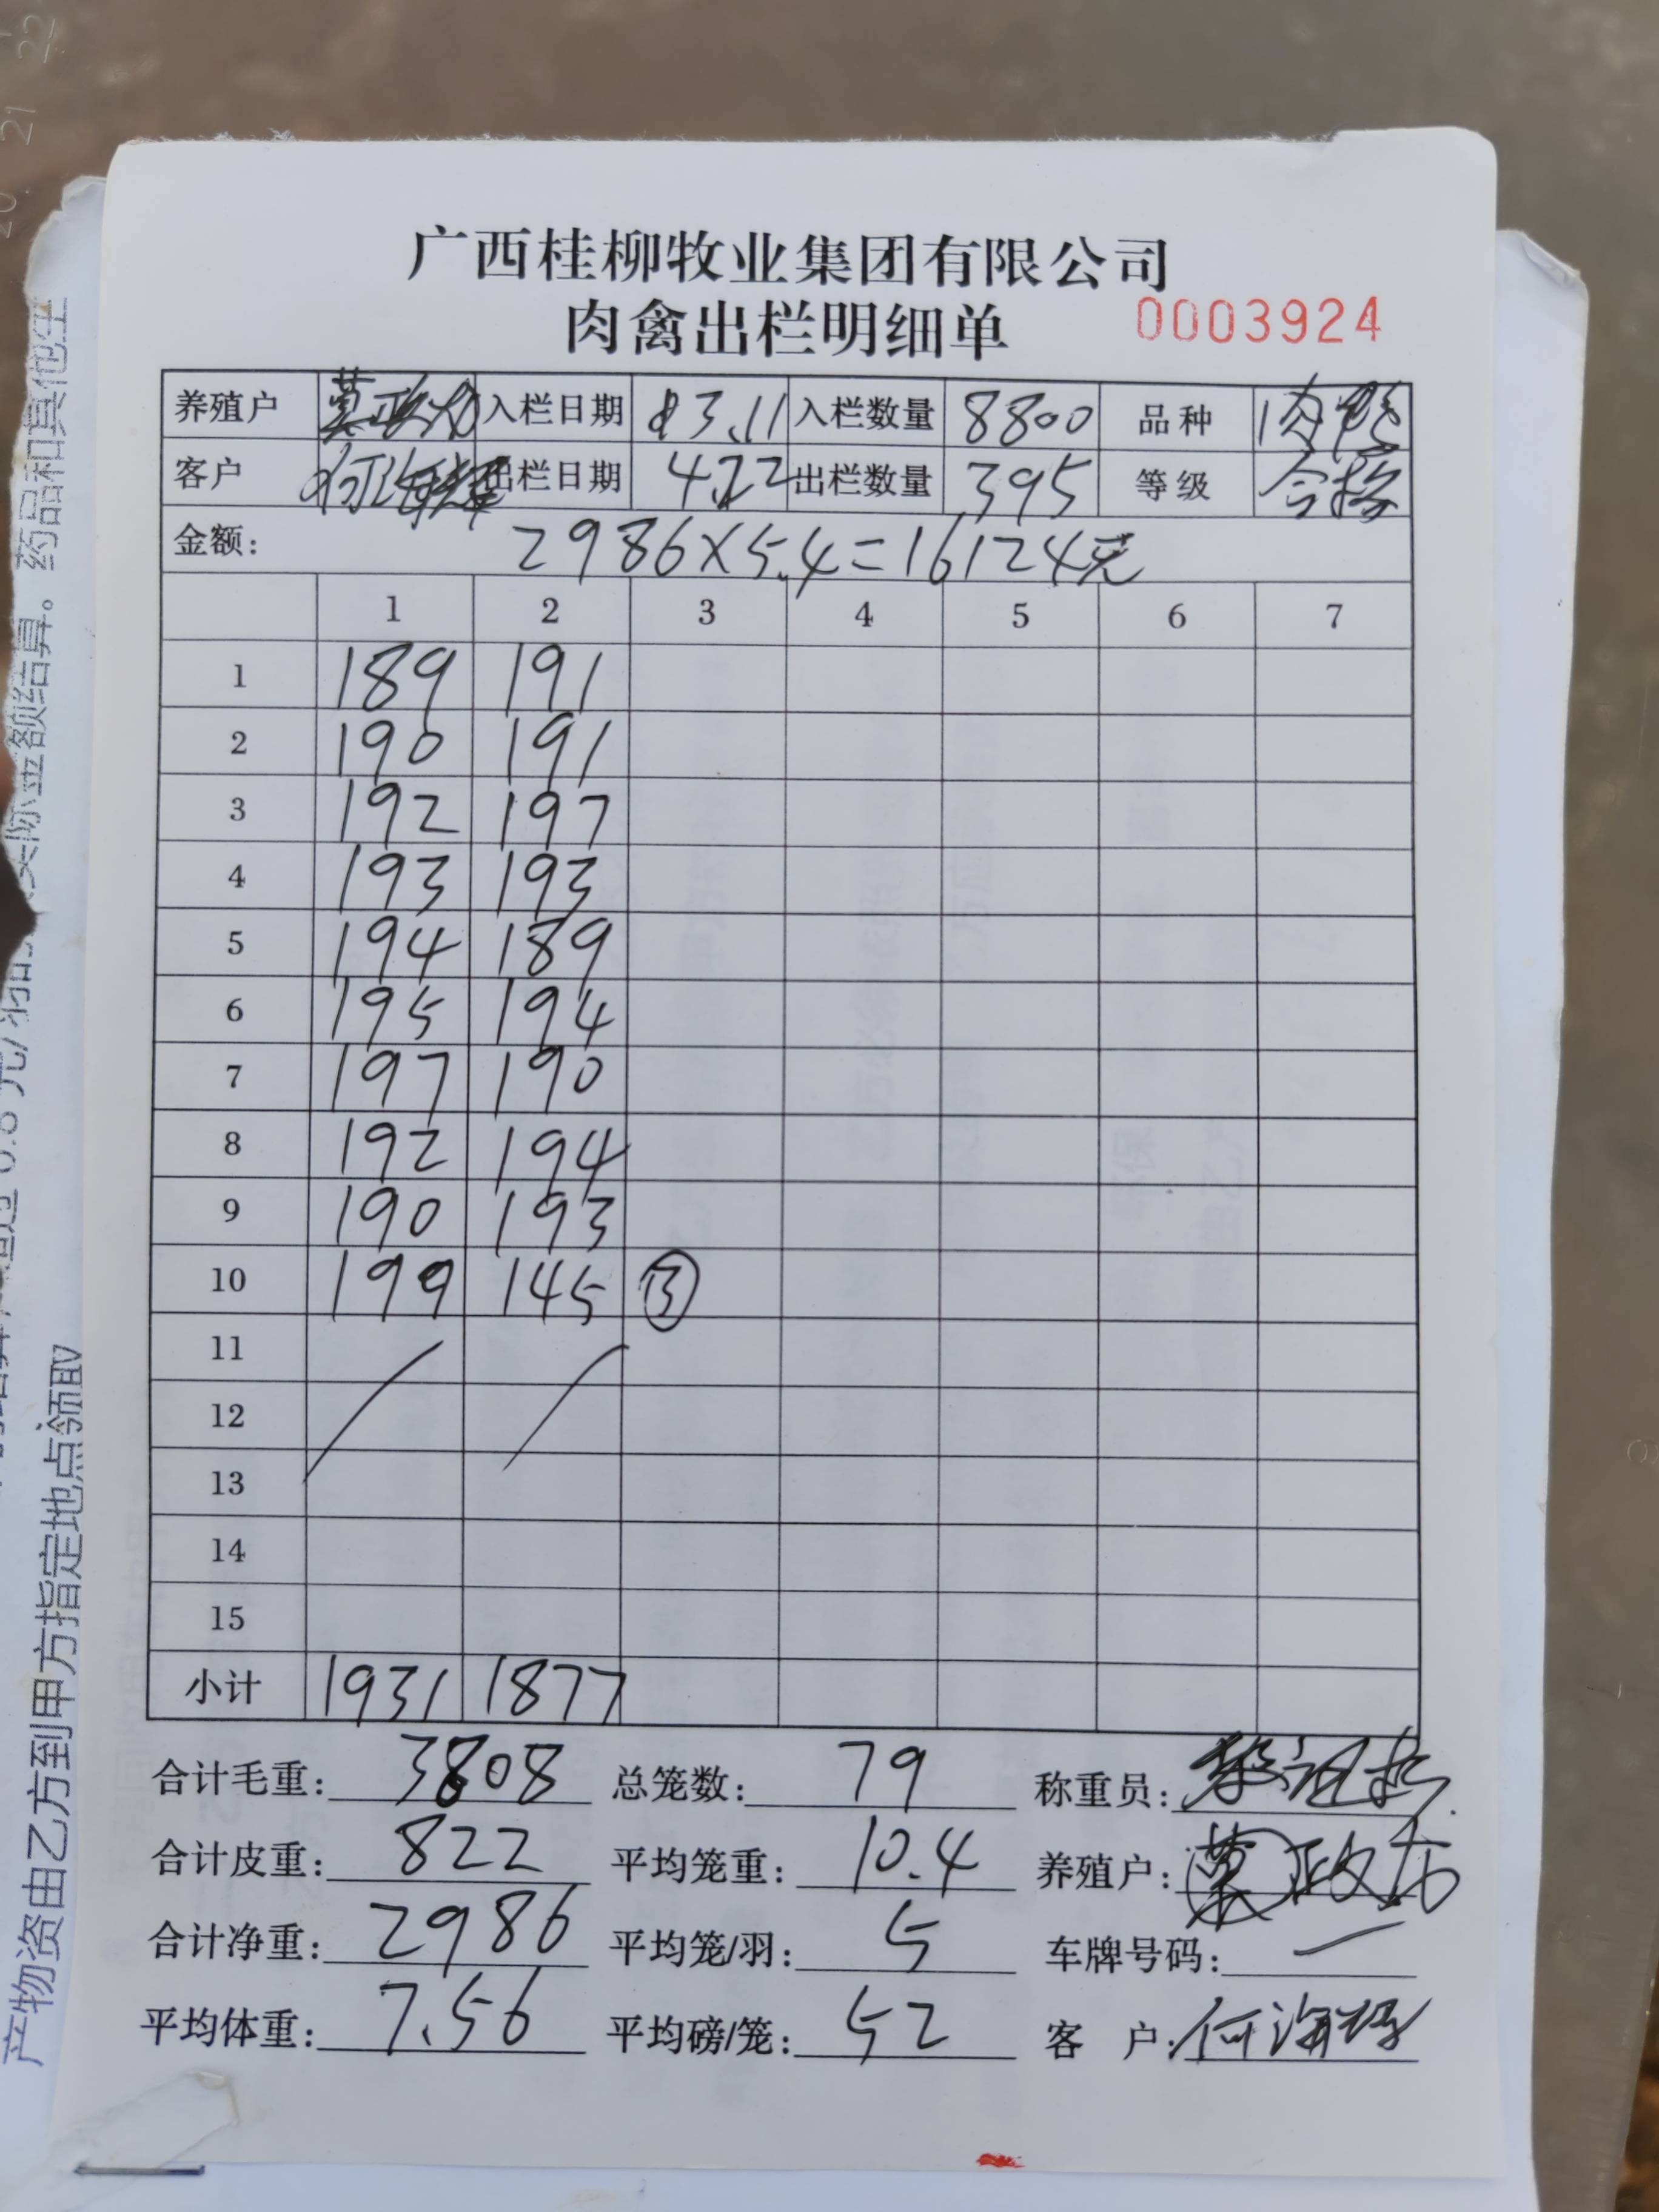 广西桂柳牧业集团有限公司
肉禽出栏明细单 0003924
养殖户 入栏日期 3.11 入栏数量 8800 品种 肉鸭
客户 出栏日期 4.22 出栏数量 395 等级 合格
金额: 2986×5.4=16124元
1 2 3 4 5 6 7
1 189 191
2 190 191
3 192 197
4 193 193
5 194 189
6 195 194
7 197 190
8 192 194
9 190 193
10 199 145 ③
11
12
13
14
15
小计 1931 1877
合计毛重: 3808 总笼数: 79 称重员:
合计皮重: 822 平均笼重: 10.4 养殖户:
合计净重: 2986 平均笼/羽: 5 车牌号码: 一
平均体重: 7.56 平均磅/笼: 52 客 户:
产物资由乙方到甲方指定地点领取
药品和其他生
20 21 22